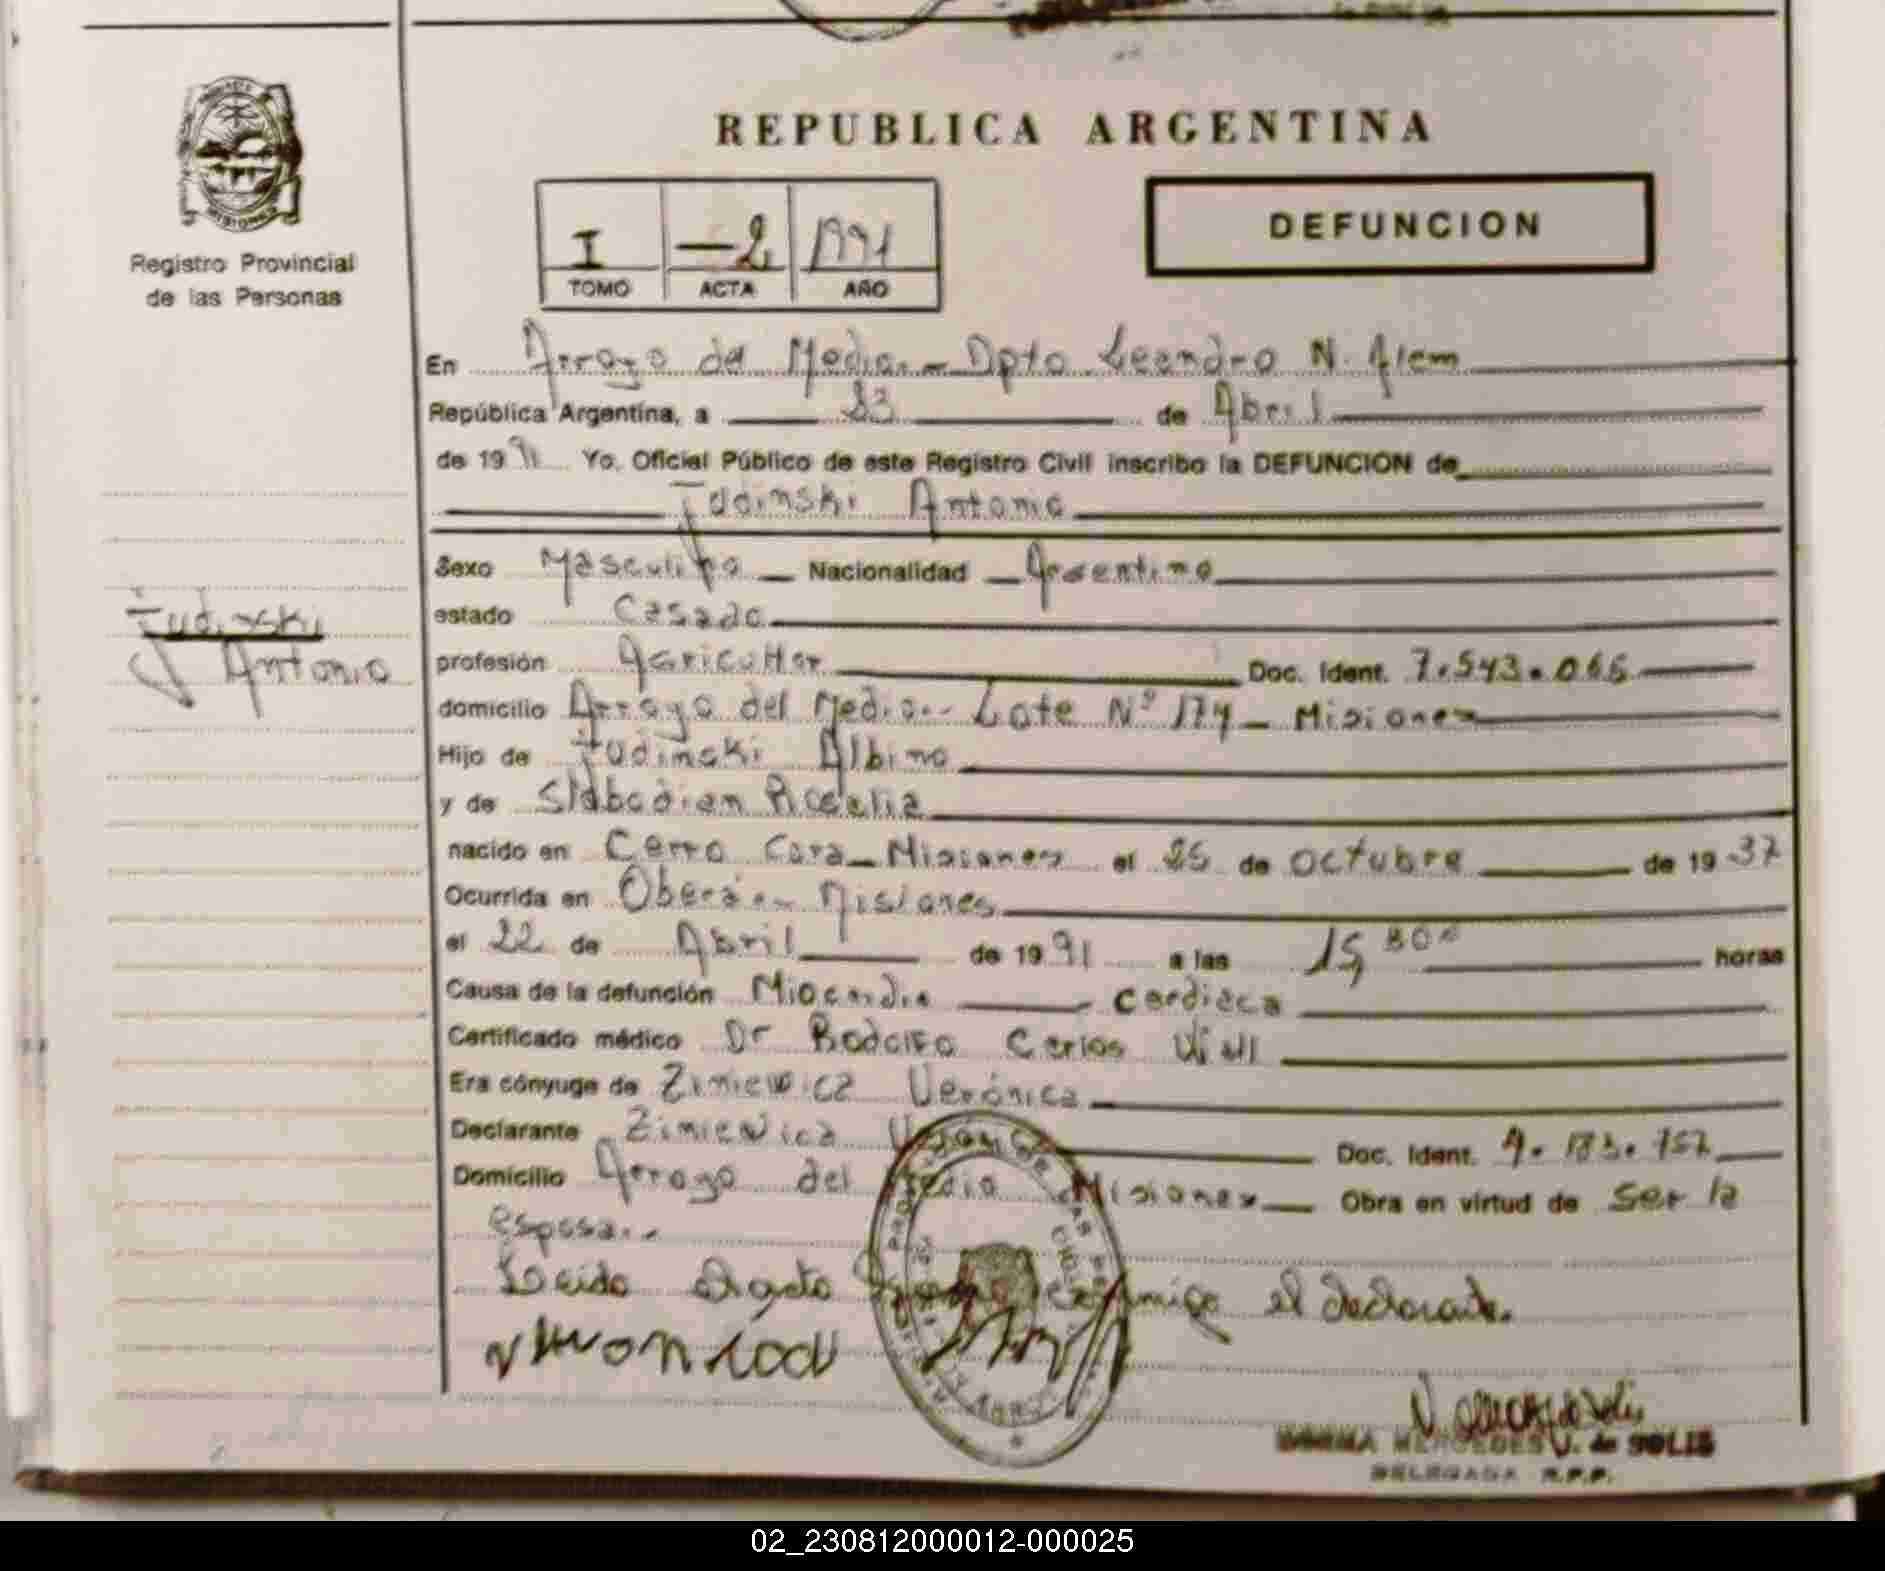 REPUBLICA ARGENTINA
DEFUNCION
I -2 1991
TOMO ACTA AÑO
MISIONES
Registro Provincial
de las Personas
En Arroyo del Medio.- Dpto Leandro N. Alem
República Argentina, a 23 de Abril
de 1991 Yo, Oficial Público de este Registro Civil inscribo la DEFUNCION de
Judinski Antonio
Judinski
Antonio
Sexo Masculino Nacionalidad Argentina
estado Casado
profesión Agricultor Doc. Ident. 7.543.066
domicilio Arroyo del Medio.- Lote Nº 174 - Misiones
Hijo de Judinski Albino
y de Slabodian Rosalia
nacido en Cerro Cora - Misiones el 26 de Octubre de 1937
Ocurrida en Oberá.- Misiones
el 22 de Abril de 1991 a las 15,30 horas
Causa de la defunción Miocardio cardiaca
Certificado médico Dr Rodolfo Carlos
Era cónyuge de Ziniewicz Verónica
Declarante Ziniewicz Verónica Doc. Ident. 4.183.152
Domicilio Arroyo del Medio Misiones Obra en virtud de ser la
esposa.-
Leida el acta firma conmigo el declarante.
MERCEDES V. de SOLIS
DELEGADA R.P.P.
02_230812000012-000025